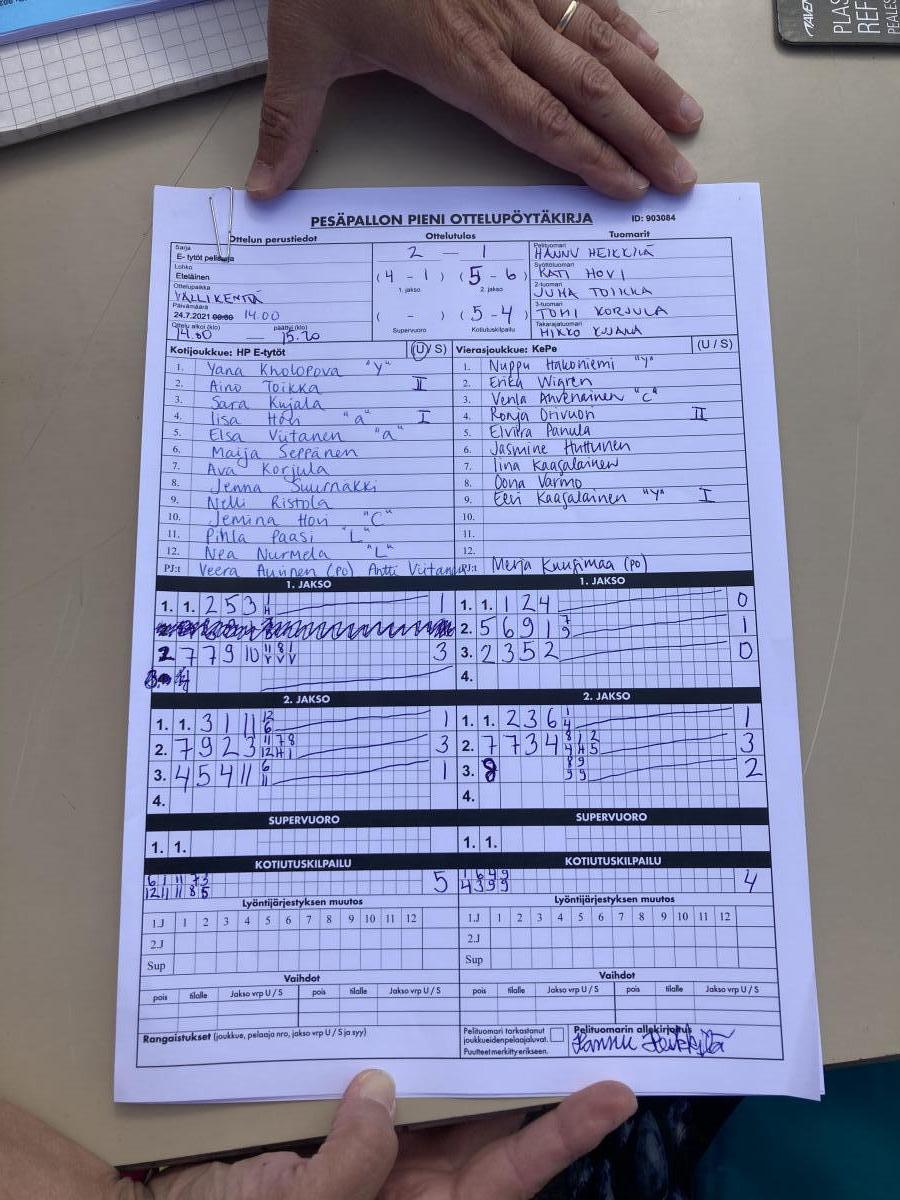 PLAS
REF
PEALES
PESÄPALLON PIENI OTTELUPÖYTÄKIRJA ID: 903084
Ottelun perustiedot Ottelutulos Tuomarit
Sarja
E- tytöt
Lohko
Eteläinen
Ottelupaikka
VALLIKENTTÄ
Päivämäärä
24.7.2021 14.00
Ottelu alkoi (klo) päättyi (klo)
14.00 — 15.20
2 — 1
(4 - 1) (5 - 6)
1. jakso 2. jakso
( - ) (5 - 4)
Supervuoro Kotiutuskilpailu
Pelituomari
HANNU HEIKKILÄ
Syöttötuomari
KATI HOVI
2-tuomari
JUHA TOIKKA
3-tuomari
TOMI KORJULA
Takarajatuomari
MIKKO KUJALA
Kotijoukkue: HP E-tytöt (U/ S)
1. Yana Kholopova "Y"
2. Aino Toikka II
3. Sara Kujala
4. Iisa Hovi "a" I
5. Elsa Viitanen "a"
6. Maija Seppänen
7. Ava Korjula
8. Jenna Suurnäkki
9. Nelli Ristola
10. Jemina Hovi "C"
11. Pihla Paasi "L"
12. Nea Nurmela "L"
PJ:t Veera (po) Antti
Vierasjoukkue: KePe (U / S)
1. Nuppu Hakoniemi "Y"
2. Erika Wigren
3. Venla Ahvenainen "C"
4. Ronja Orivuori II
5. Elviira Panula
6. Jasmine Huttunen
7. Iina Kaasalainen
8. Oona Varmo
9. Eevi Kaasalainen "Y" I
10.
11.
12.
PJ:t Merja Kuusimaa (po)
1. JAKSO
1. 1. 2 5 3 1 H 1
2 7 7 9 10 11 8 1 V V V 3
1. JAKSO
1. 1. 1 2 4 0
2. 5 6 9 1 7 9 1
3. 2 3 5 2 0
4.
2. JAKSO
1. 1. 3 1 11 12 6 1
2. 7 9 2 3 11 7 8 12 H 1 3
3. 4 5 4 11 6 11 1
4.
2. JAKSO
1. 1. 2 3 6 1 4 1
2. 7 7 3 4 8 1 2 4 H 5 3
3. 8 8 9 9 9 2
4.
SUPERVUORO
1. 1.
SUPERVUORO
1. 1.
KOTIUTUSKILPAILU
6 1 11 7 3 5
12 11 11 8 5
KOTIUTUSKILPAILU
1 6 4 9 4
4 3 9 9
Lyöntijärjestyksen muutos
1.J 1 2 3 4 5 6 7 8 9 10 11 12
2.J
Sup
Lyöntijärjestyksen muutos
1.J 1 2 3 4 5 6 7 8 9 10 11 12
2.J
Sup
Vaihdot
pois tilalle Jakso vrp U / S pois tilalle Jakso vrp U / S
Vaihdot
pois tilalle Jakso vrp U / S pois tilalle Jakso vrp U / S
Rangaistukset (joukkue, pelaaja nro, jakso vrp U / S ja syy)
Pelituomari tarkastanut
joukkueiden pelaajaluvat.
Puutteet merkitty erikseen.
Pelituomarin allekirjoitus
Hannu Heikkilä